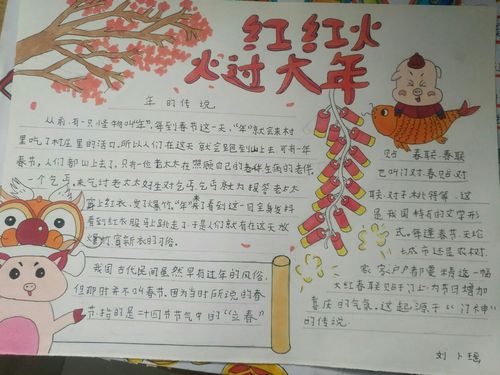 红红火
火过大年
年的传说
从前有一只怪物叫"年",每到春节这一天,"年"就会来村
里吃了村庄里的活口,所以人们在这天就会跑到山上去,可有一年
春节,人们都山上去了,只有一位老太太在照顾自己的生病的老伴,
一个乞丐,来乞讨老太太好生对乞丐,乞丐就为报答老太太
穿上红衣,燃爆竹,"年"看到这一目全身发抖
看到红衣服马上跳走了,于是人们就有在这天放
爆竹穿新衣的习俗。
我国古代民间虽然早有过年的风俗,
但那时并不叫春节。因为当时所说的春
节,指的是二十四节气中的"立春"
贴春联:春联
也叫门对、春贴、对
联、对子、桃符等,这
是我国特有的文学形
式。每逢春节,无论
城市还是农村,
家家户户都要精选一幅
大红春联贴于门上,为节日增加
喜庆的气氛,这起源于"门神"
的传说
刘卜瑶